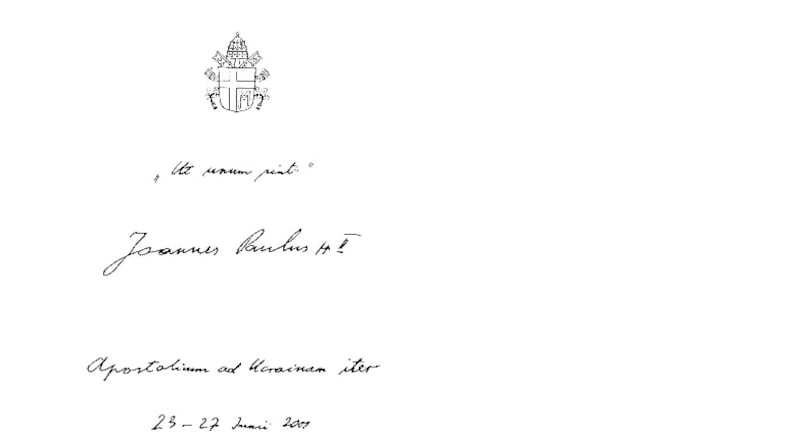 „Ut unum sint"
Joannes Paulus pp II
Apostolicum ad Ucrainam iter
23–27 Junii 2001